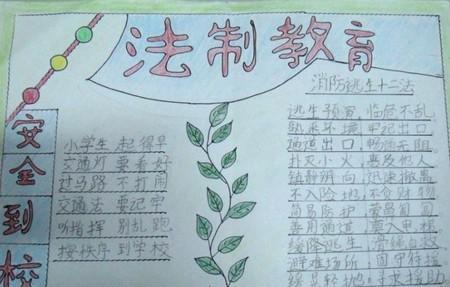 法制教育
安全到校
小学生 起得早
交通灯 要看好
过马路 不打闹
交通法 要记牢
听指挥 别乱跑
按秩序 到学校
消防逃生十二法
逃生预演，临危不乱
熟悉环境，牢记出口
通道出口，畅通无阻
扑灭小火，惠及他人
镇静辨向，迅速撤离
不入险地，不贪财物
简易防护，
善用通道，
缓降逃生，滑绳自救
避难场所，固守待援
缓晃轻抛，寻求援助